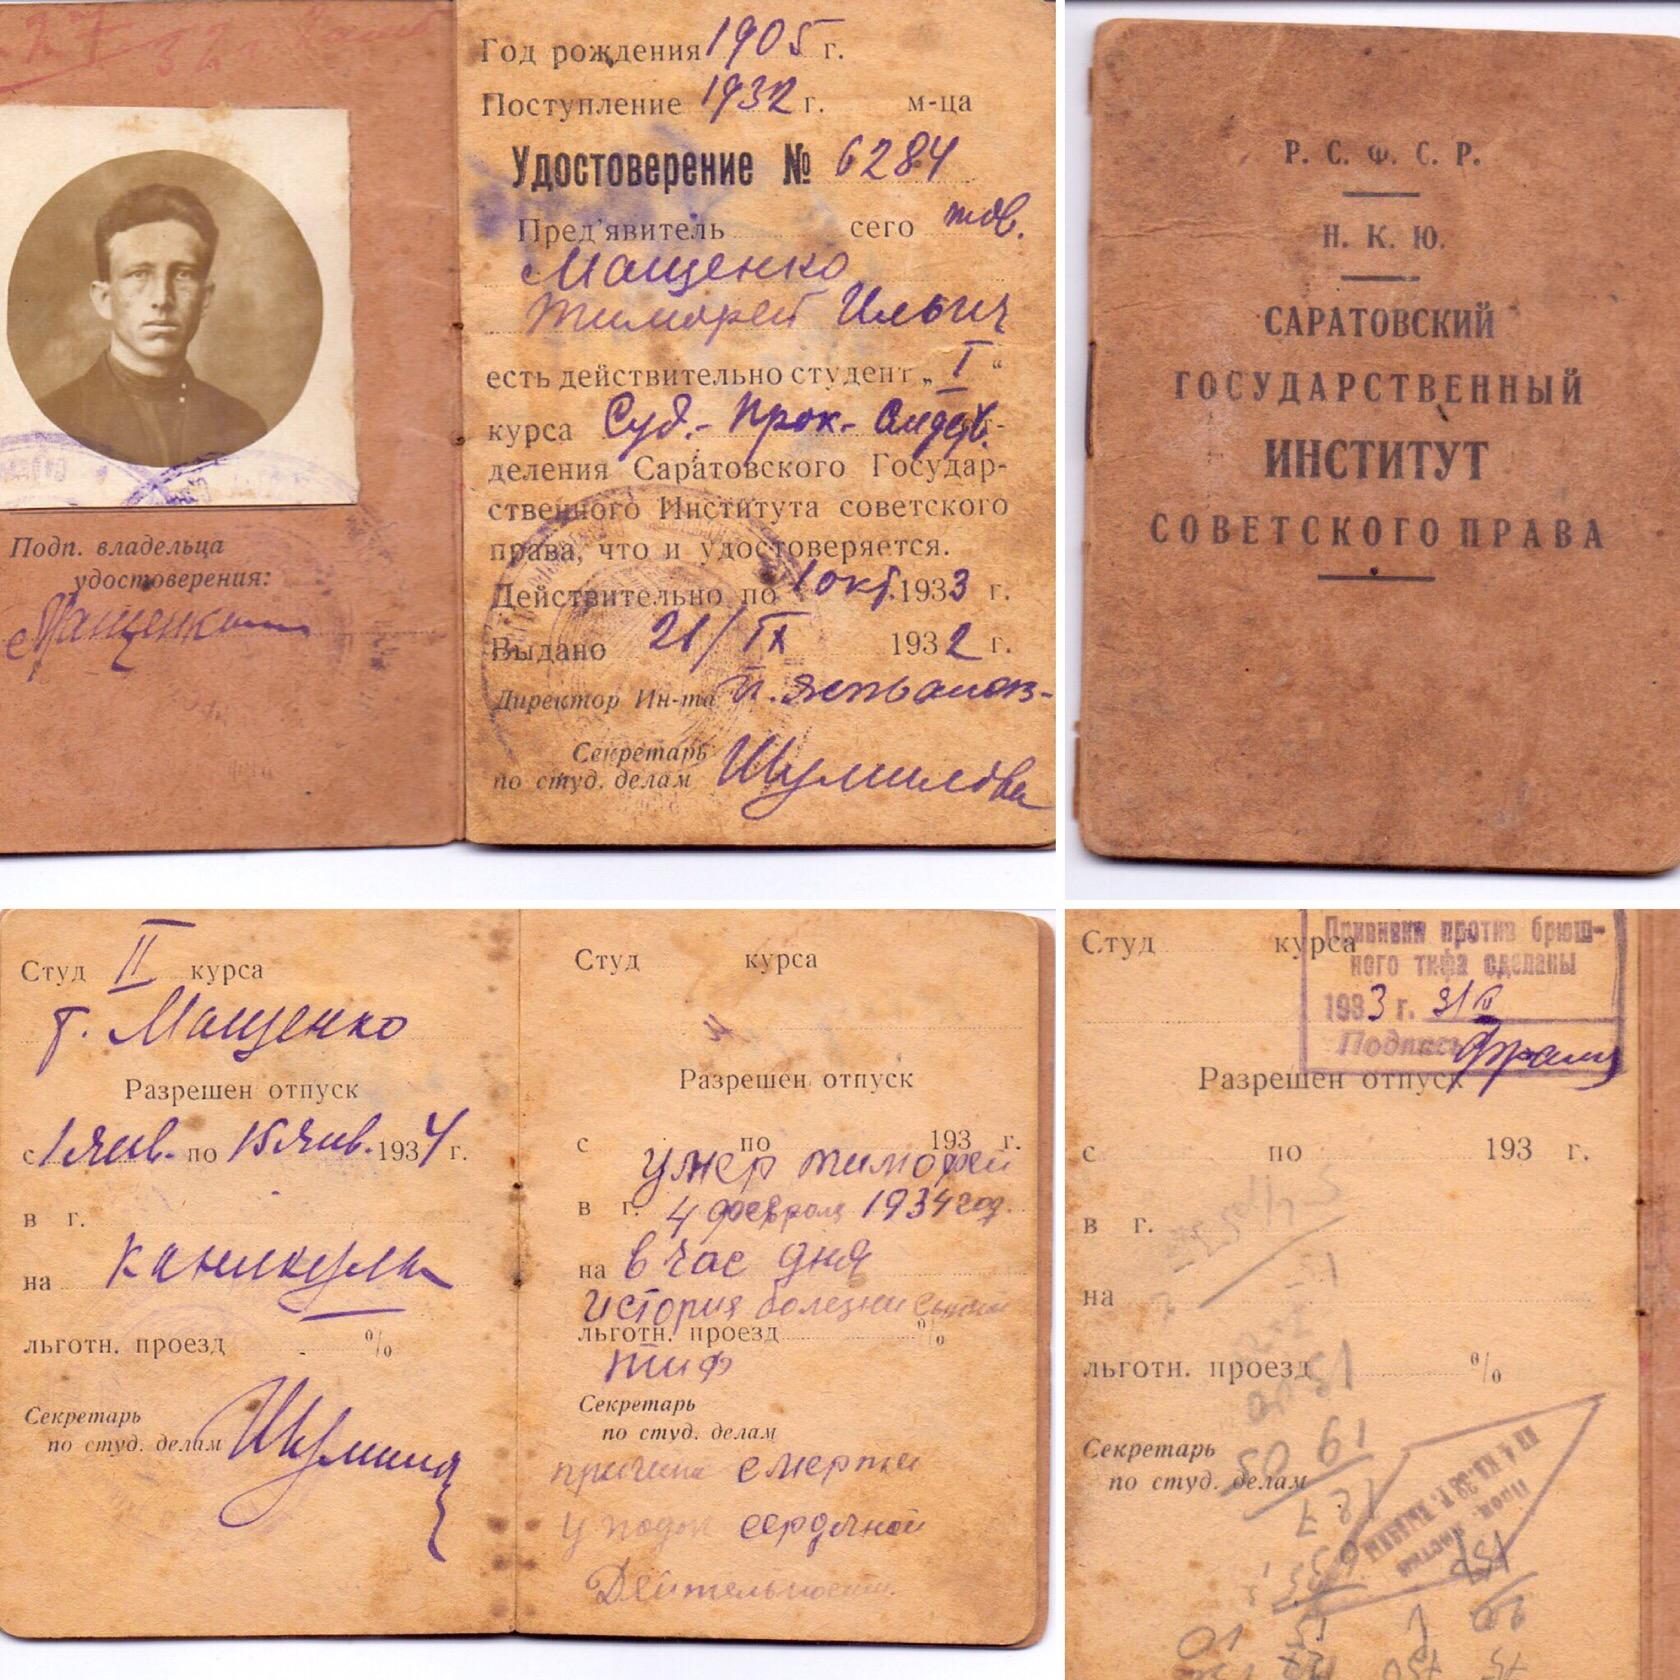 Год рождения 1905 г.
Поступление 1932 г. м-ца
Удостоверение № 6284
Пред'явитель сего тов.
Мащенко
Тимофей Ильич
есть действительно студент „I“
курса Суд.-Прок.-
деления Саратовского Государ-
ственного Института советского
права, что и удостоверяется.
Действительно по 1 окт. 1933 г.
Выдано 21/IX 1932 г.
Директор Ин-та
Секретарь
по студ. делам Шумилова
Подп. владельца
удостоверения:
Мащенко
Р. С. Ф. С. Р.
Н. К. Ю.
САРАТОВСКИЙ
ГОСУДАРСТВЕННЫЙ
ИНСТИТУТ
СОВЕТСКОГО ПРАВА
Студ II курса
т. Мащенко
Разрешен отпуск
с 1 янв. по 15 янв. 1934 г.
в г.
на каникулы
льготн. проезд - %
Секретарь
по студ. делам
Студ курса
Разрешен отпуск
с по 193 г.
умер тимофей
в г. 4 февраля 1934 год.
на в час дня
История болезни
льготн. проезд %
тиф
Секретарь
по студ. делам
причина смерти
упадок сердечной
Деятельности.
Студ курса
Прививки против брюш-
ного тифа сделаны
1933 г.
Подпись
Разрешен отпуск
с по 193 г.
в г.
на
льготн. проезд %
Секретарь
по студ. делам